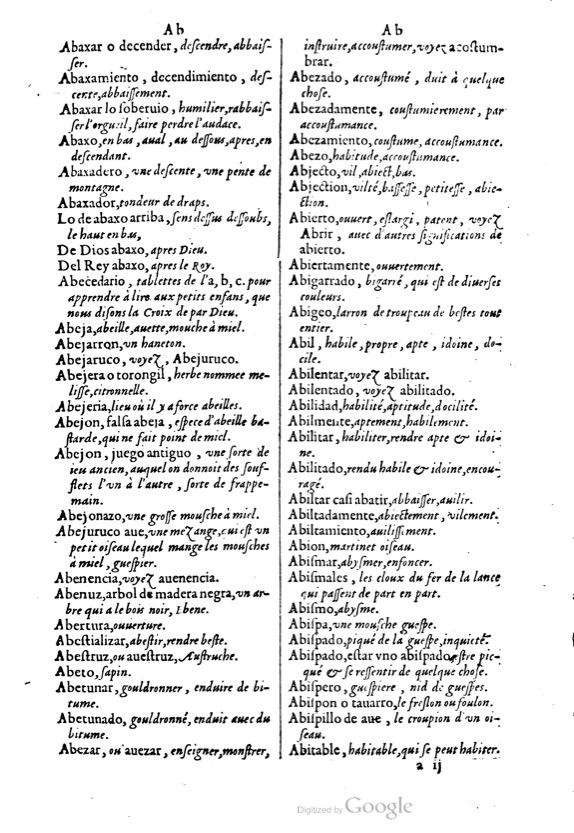 Ab
Abaxar o decender, deſcendre, abbaiſ-
ſer.
Abaxamiento, decendimiento, deſ-
cente, abbaiſſement.
Abaxar lo ſoberuio, humilier, rabbaiſ-
ſer l'orgueil, faire perdre l'audace.
Abaxo, en bas, aual, au deſſous, apres, en
deſcendant.
Abaxadero, vne deſcente, vne pente de
montagne.
Abaxador, tondeur de draps.
Lo de abaxo arriba, ſens deſſus deſſoubs,
le haut en bas,
De Dios abaxo, apres Dieu.
Del Rey abaxo, apres le Roy.
Abecedario, tablettes de l'a, b, c. pour
apprendre à lire aux petits enfans, que
nous diſons la Croix de par Dieu.
Abeja, abeille, auette, mouche à miel.
Abejarron, vn haneton.
Abejaruco, voyez, Abejuruco.
Abejera o torongil, herbe nommee me-
liſſe, citronnelle.
Abejeria, lieu où il y a force abeilles.
Abejon, falſa abeja, eſpece d'abeille ba-
ſtarde, qui ne fait point de miel.
Abejon, juego antiguo, vne ſorte de
ieu ancien, auquel on donnoit des ſouf-
flets l'vn à l'autre, ſorte de frappe-
main.
Abejonazo, vne groſſe mouſche à miel.
Abejuruco aue, vne mezange, cui eſt vn
petit oiſeau lequel mange les mouſches
à miel, gueſpier.
Abenencia, voyez auenencia.
Abenuz, arbol de madera negra, vn ar-
bre qui a le bois noir, Ebene.
Abertura, ouuerture.
Abeſtializar, abeſtir, rendre beſte.
Abeſtruz, ou aueſtruz, Auſtruche.
Abeto, ſapin.
Abetunar, gouldronner, enduire de bi-
tume.
Abetunado, gouldronné, enduit auec du
bitume.
Abezar, ou auezar, enſeigner, monſtrer,
Ab
inſtruire, accouſtumer, voyez acoſtum-
brar.
Abezado, accouſtumé, duit à quelque
choſe.
Abezadamente, couſtumierement, par
accouſtumance.
Abezamiento, couſtume, accouſtumance.
Abezo, habitude, accouſtumance.
Abjecto, vil, abiect, bas.
Abjection, vilté, baſſeſſe, petiteſſe, abie-
ction.
Abierto, ouuert, eſlargi, patent, voyez
Abrir, auec d'autres ſignifications de
abierto.
Abiertamente, ouuertement.
Abigarrado, bigarré, qui eſt de diuerſes
couleurs.
Abigeo, larron de troupeau de beſtes tout
entier.
Abil, habile, propre, apte, idoine, do-
cile.
Abilentar, voyez abilitar.
Abilentado, voyez abilitado.
Abilidad, habilité, aptitude, docilité.
Abilmente, aptement, habilement.
Abilitar, habiliter, rendre apte & idoi-
ne.
Abilitado, rendu habile & idoine, encou-
ragé.
Abiltar caſi abatir, abbaiſſer, auilir.
Abiltadamente, abiectement, vilement.
Abiltamiento, auiliſſiment.
Abion, martinet oiſeau.
Abiſmar, abyſmer, enfoncer.
Abiſmales, les cloux du fer de la lance
qui paſſent de part en part.
Abiſmo, abyſme.
Abiſpa, vne mouſche gueſpe.
Abiſpado, piqué de la gueſpe, inquieté.
Abiſpado, eſtar vno abiſpado, eſtre pic-
qué & ſe reſſentir de quelque choſe.
Abiſpero, gueſpiere, nid de gueſpes.
Abiſpon o tauarro, le freſlon ou foulon.
Abiſpillo de aue, le croupion d'vn oi-
ſeau.
Abitable, habitable, qui ſe peut habiter.
a ij
Digitized by Google